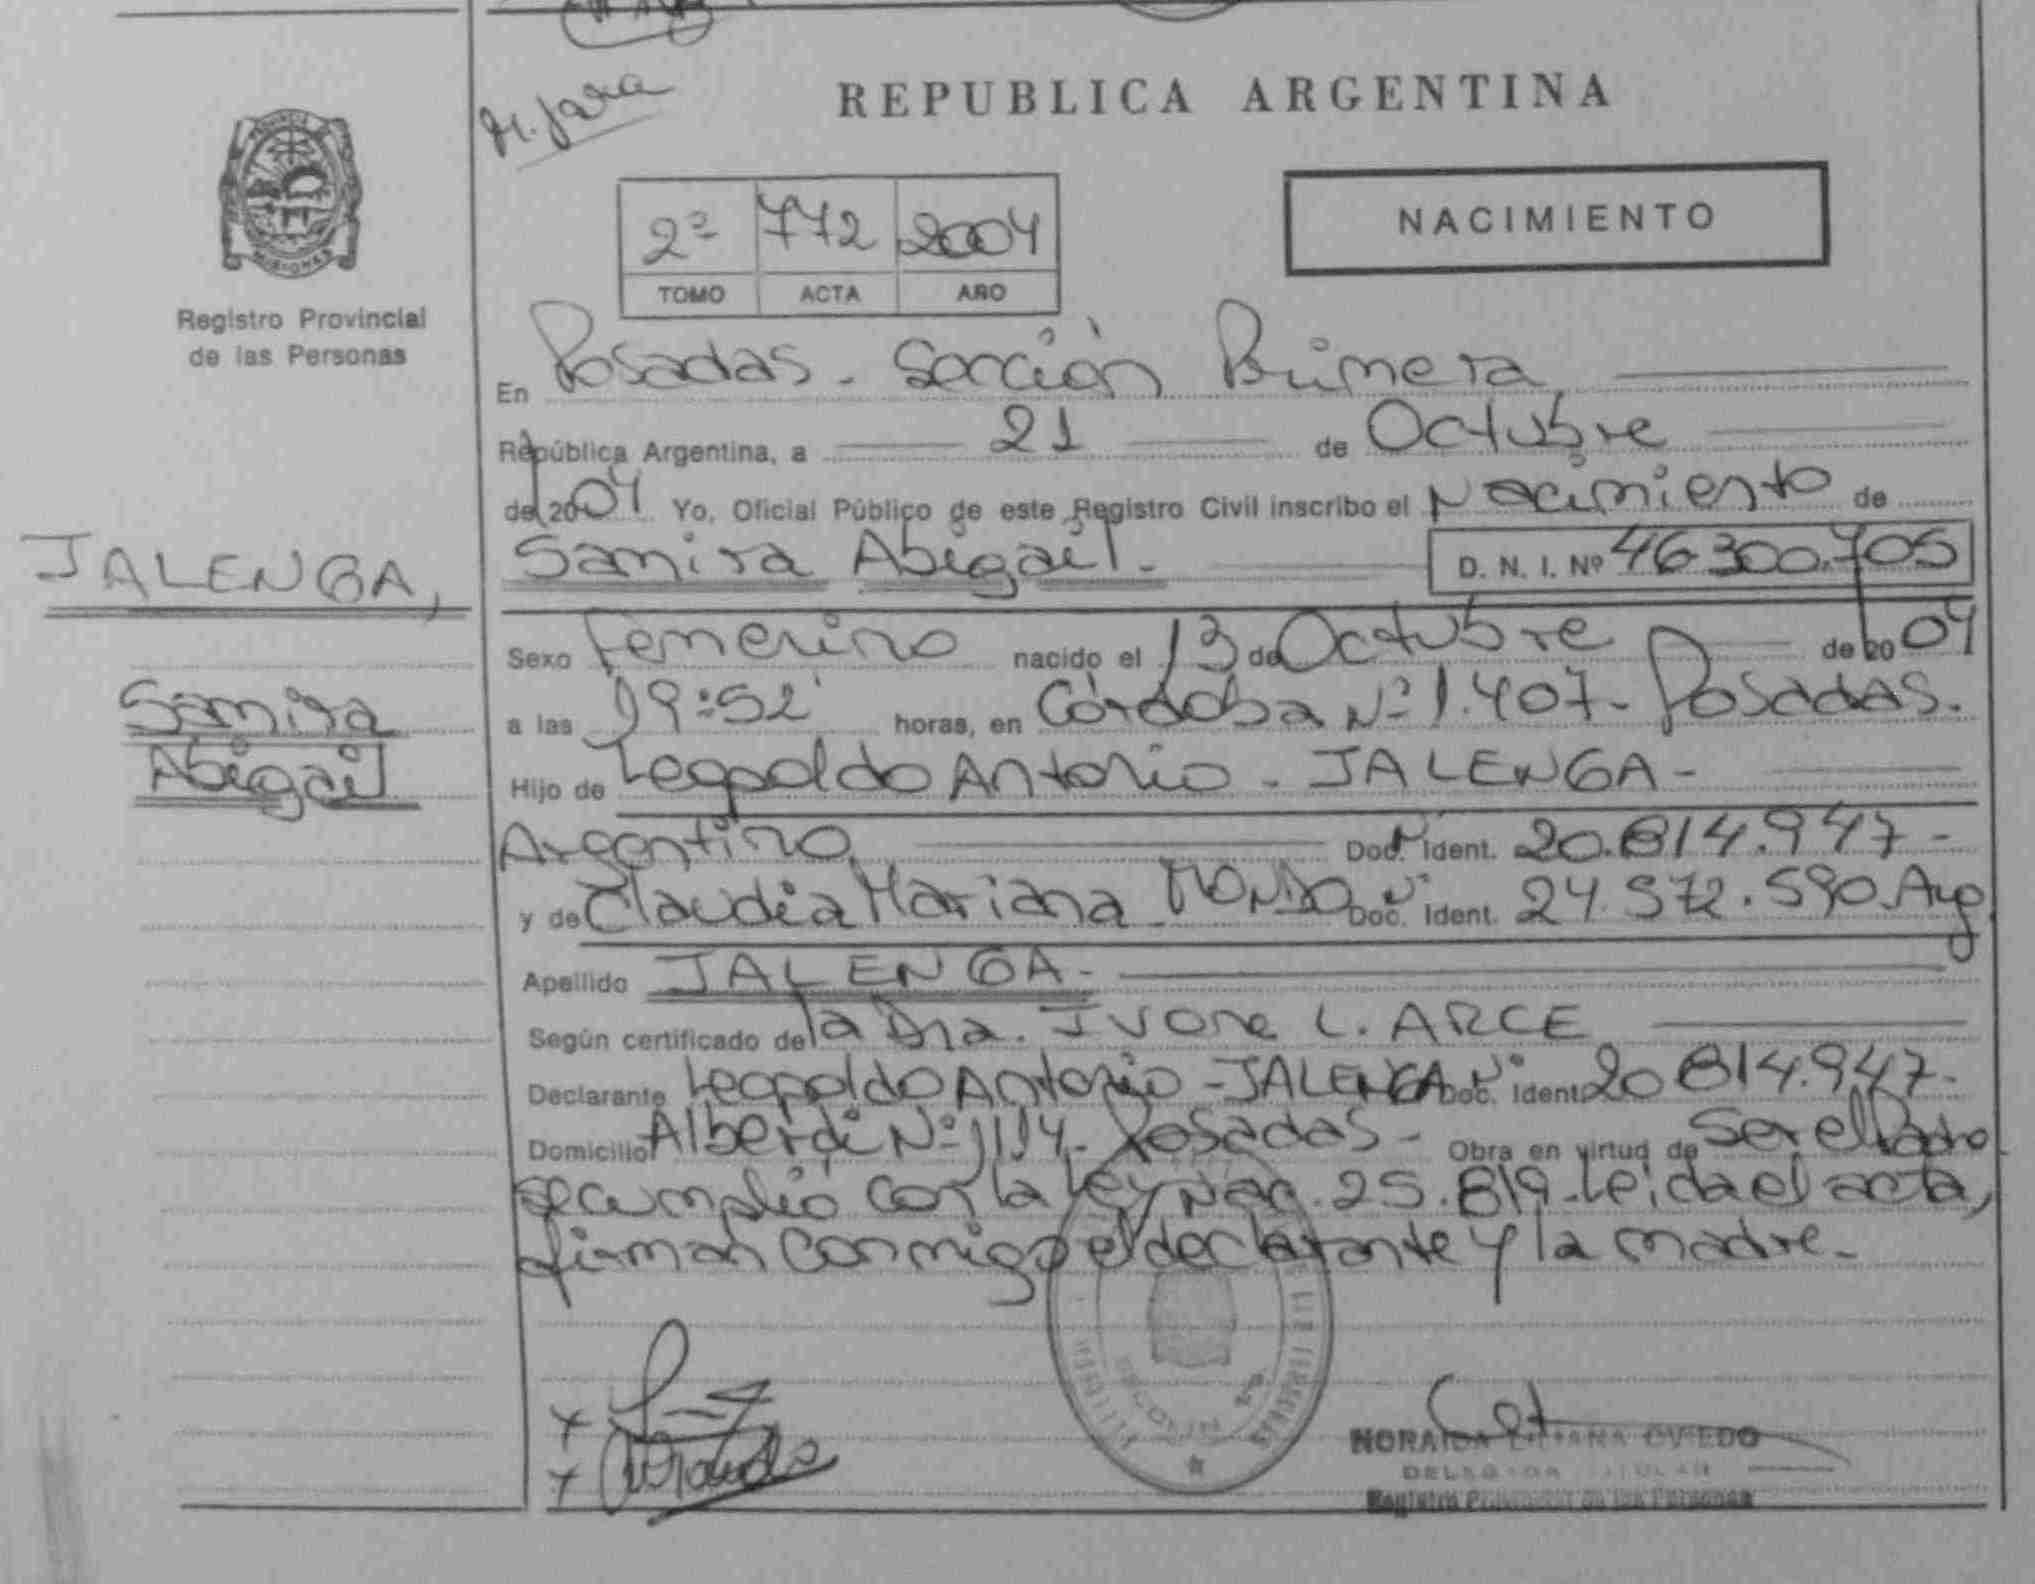 H. Jara
REPUBLICA ARGENTINA
PROVINCIA
MISIONES
Registro Provincial
de las Personas
2º 772 2004
TOMO ACTA AÑO
NACIMIENTO
En Posadas - Sección Primera
República Argentina, a 21 de Octubre
de 2004 Yo, Oficial Público de este Registro Civil inscribo el Nacimiento de
JALENGA,
Samira Abigail. D. N. I. Nº 46.300.705
Sexo Femenino nacido el 13 de Octubre de 2004
Samira
Abigail
a las 19:52 horas, en Córdoba Nº 1.407 - Posadas.
Hijo de Leopoldo Antonio - JALENGA -
Argentino Doc. Nº Ident. 20.814.947 -
y de Claudia Mariana Doc. Nº Ident. 24.572.590. Arg
Apellido JALENGA -
Según certificado de la Dra. Ivone L. ARCE
Declarante Leopoldo Antonio - JALENGA Doc. Nº Ident. 20 814.947 -
Domicilio Alberdi Nº 1114 - Posadas - Obra en virtud de Ser el Padre
se cumplió con la Ley Nac. 25.819 - Leida el acta,
firman conmigo el declarante y la madre -
NORAIDA LILIANA OVIEDO
DELEGADA TITULAR
Registro Provincial de las Personas